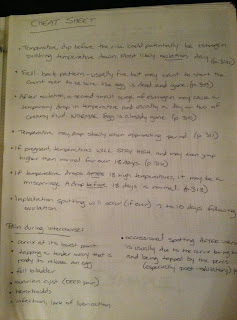 CHEAT SHEET
• Temperature dip before the rise could potentially be estrogen
pushing temperature down. Most likely ovulation day. (p
• Fall back pattern - usually fine, but may want to start the
count over to be sure the egg is dead and gone. (p.
• After ovulation, a second small surge of estrogen may cause a
temporary drop in temperature and usually a day or two of
creamy fluid, whereas Egg is already gone. (p
• Temperature may drop slowly when approaching period. (p
• If pregnant, temperatures will STAY HIGH, and may even jump
higher than normal for over 18 days. (p
• If temperature drops after 18 high temperatures, it may be a
miscarriage. A drop before 18 days is normal. (p
• Implantation spotting will occur (if ever) 7 to 10 days following
ovulation.
Pain during intercourse:
• cervix at its lowest point
• tapping a tender ovary that's
ready to release an egg
• full bladder
• ovarian cyst (DEEP pain)
• hemorrhoids
• infection, lack of lubrication
• occasional spotting AFTER
is usually due to the cervix being
and being tapped by the penis
(especially post-ovulatory)